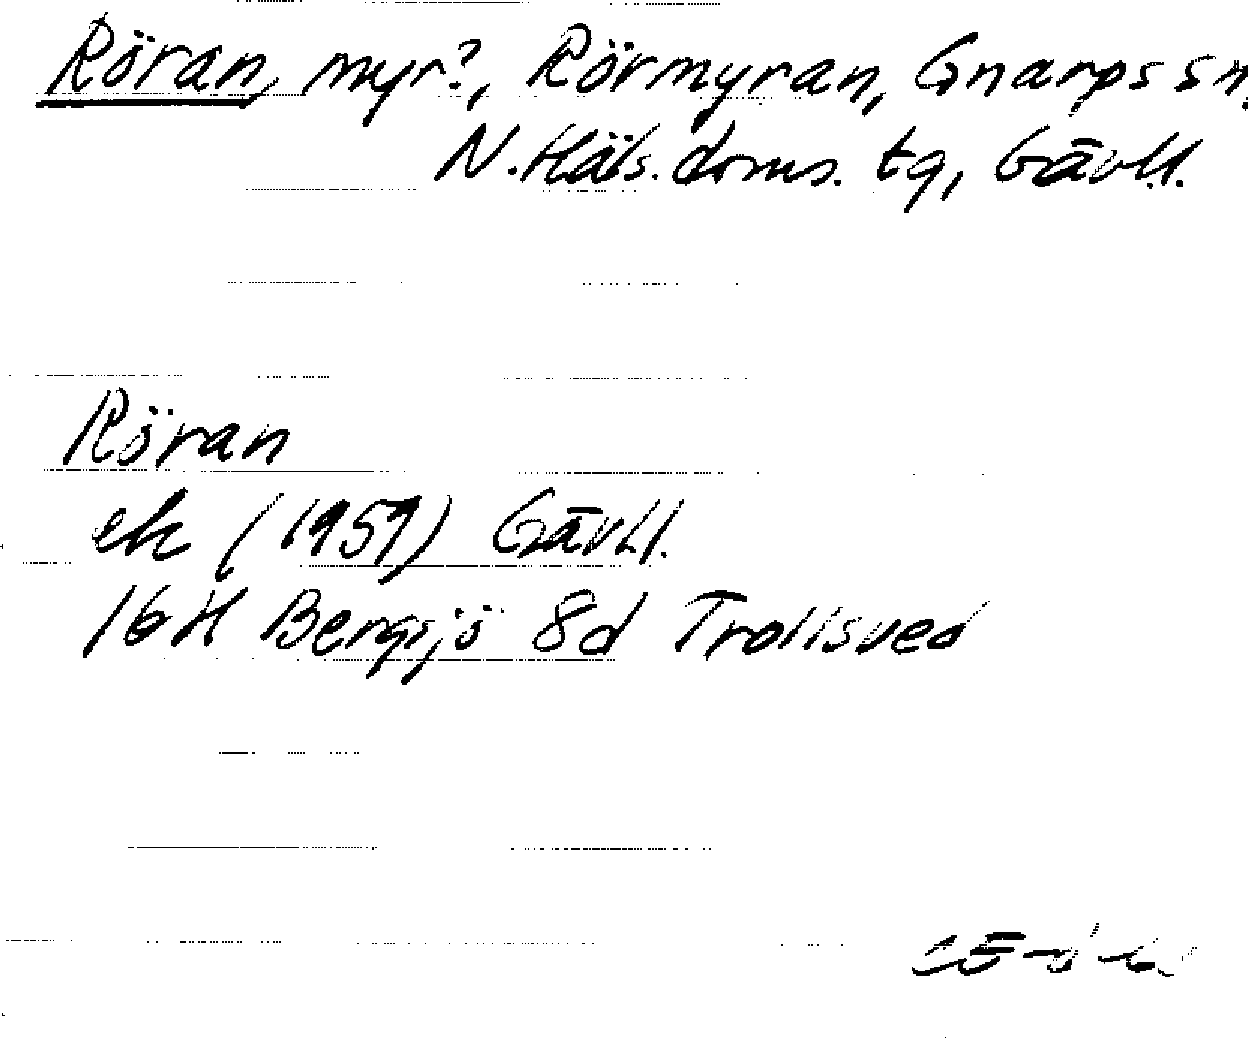 Röran, myr?, Rörmyran, Gnarps sn,
N. Häls. doms. tg, Gävl.l.
Röran
ek (1959) Gävl.l.
16H Bergsjö 8d Trollsved